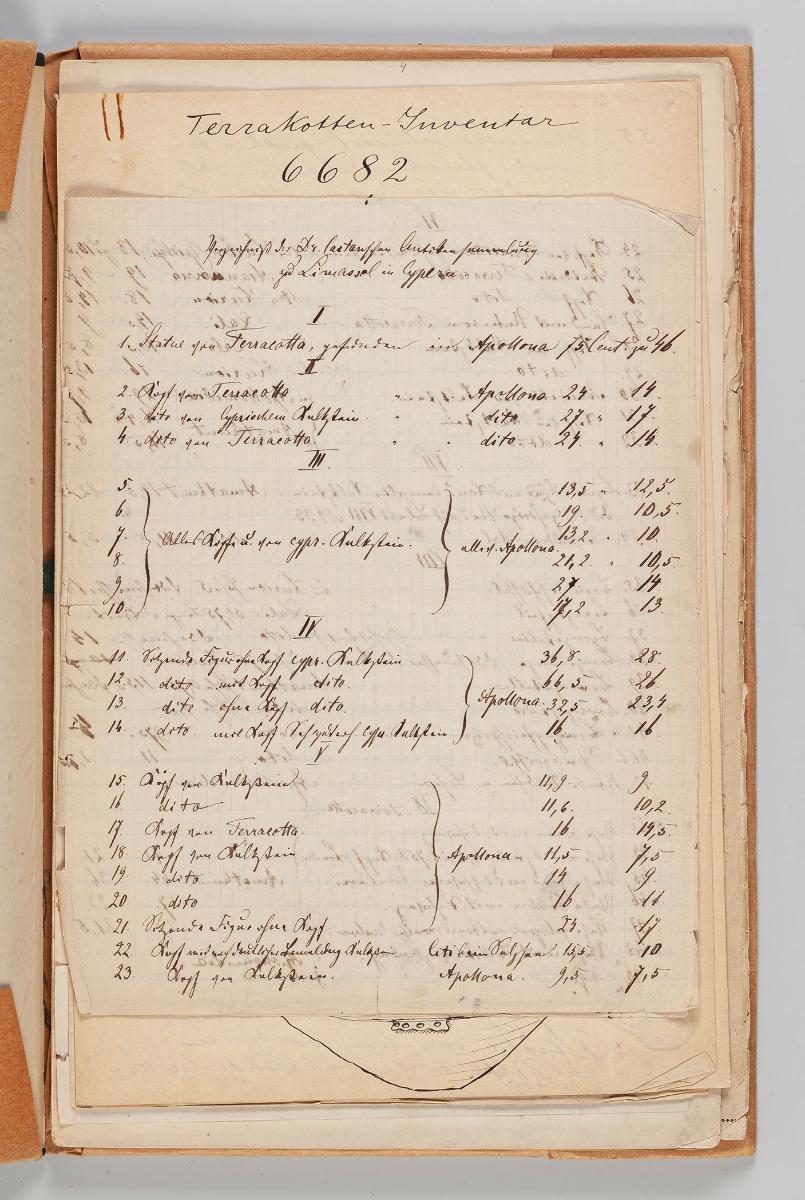 4
II
Terrakotten-Inventar
6682
Verzeichniß der Dr. Castan'schen Antiken Sammlung
zu Limassol in Cypern
I
1. Statue von Terracotta, gefunden in Apollona 75 Cent. zu 46.
II
2. Kopf von Terracotta " " Apollona 24 " 14.
3. dito von Cyprischem Kalkstein. " dito 27 " 17.
4. dito von Terracotta " " dito. 24 " 14.
III
5. 13,5 " 12,5.
6. 19. 10,5.
7. 13,2. " 10.
Alles Köpfe u. von cypr. Kalkstein. alle v. Apollona.
8. 21,2. " 10,5
9. 27. 14
10. 17,2 13.
IV
11. Sitzende Figur ohne Kopf cypr. Kalkstein 36,8. 28.
12. dito mit Kopf dito. 66,5 26
13. dito ohne Kopf dito. Apollona. 32,5 23,4
14. dito mit Kopf cypr. Kalkstein 16 16.
V
15. Kopf von Kalkstein 11,9. 9
16. dito 11,6. 10,2
17. Kopf von Terracotta. 16 14,5.
18. Kopf von Kalkstein Apollona " 11,5 7,5
19. dito 14 9
20 dito 16 11
21. Sitzende Figur ohne Kopf 23. 17
22. Kopf mit noch deutlicher Bemalung Kalkstein beim Salzsee. 15,5 10
23. Kopf von Kalkstein. Apollona. 9,5 7,5